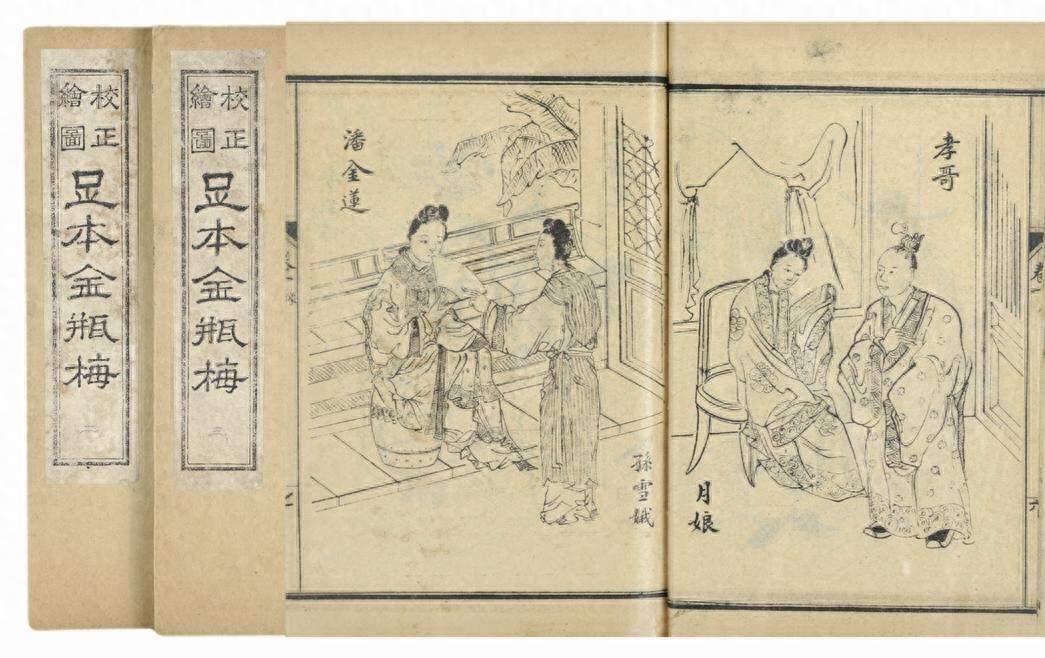 校正
繪圖
足本金瓶梅
二
校正
繪圖
足本金瓶梅
三
潘金蓮
孫雪娥
孝哥
月娘
卷
六